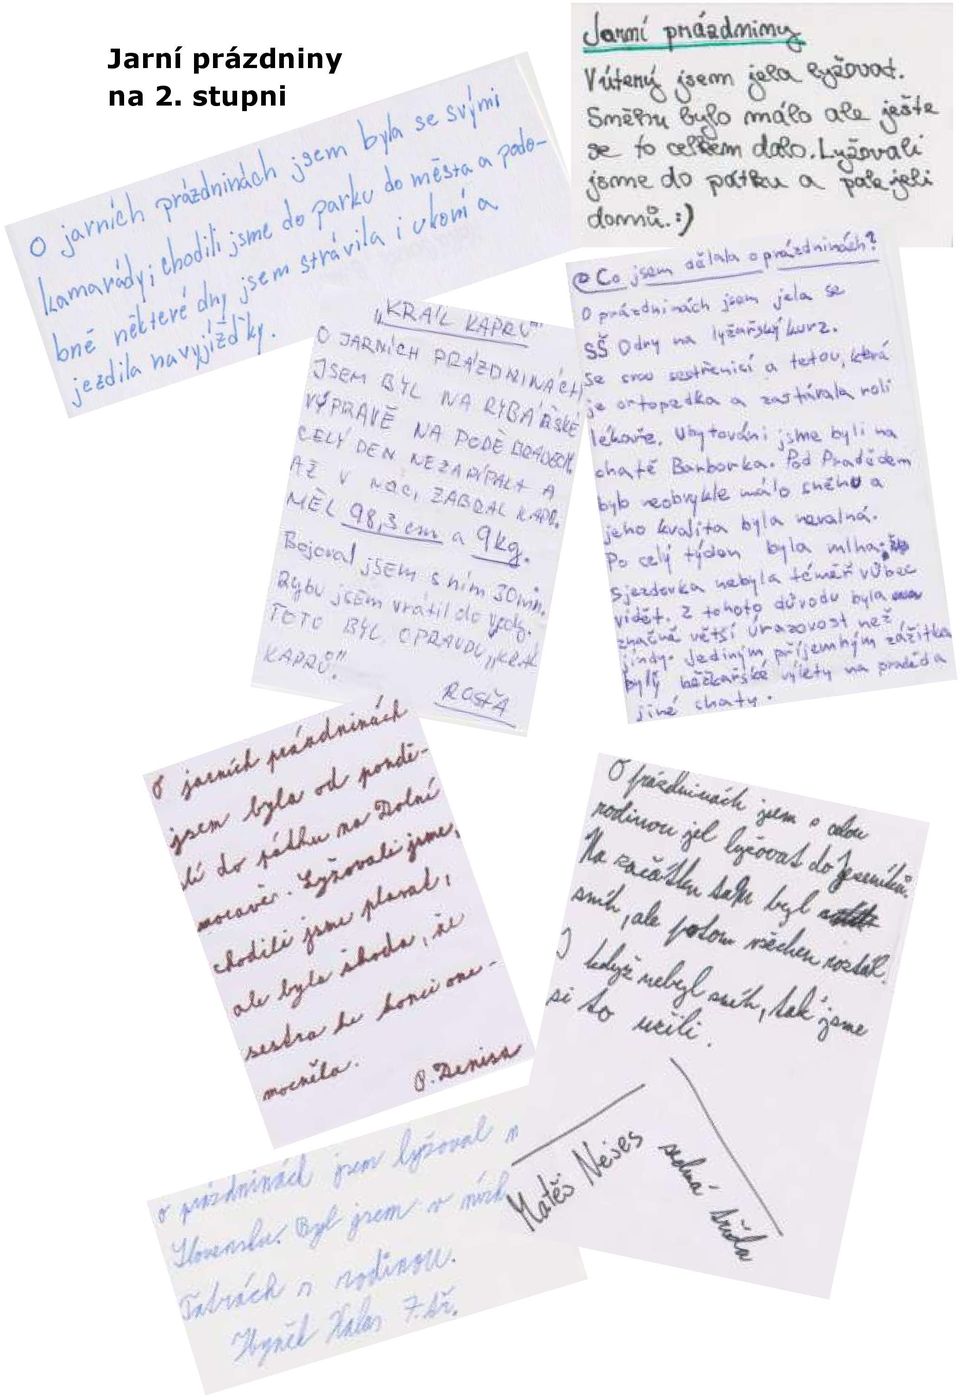 Jarní prázdniny
na 2. stupni
O jarních prázdninách jsem byla se svými
kamarády, chodili jsme do parku do města a podo-
bně některé dny jsem strávila i u koní a
jezdila na vyjížďky.
Jarní prázdniny
V úterý jsem jela lyžovat.
Sněhu bylo málo ale ješte
se to celkem dalo. Lyžovali
jsme do pátku a pak jeli
domů. :)
Co jsem dělala o prázdninách?
O prázdninách jsem jela se
SŠ Odry na lyžařský kurz.
Se svou sestřenicí a tetou, která
je ortopedka a zastávala roli
lékaře. Ubytováni jsme byli na
chatě Barborka. Pod Pradědem
bylo neobvykle málo sněhu a
jeho kvalita byla nevalná.
Po celý týden byla mlha,
sjezdovka nebyla téměř vůbec
vidět. Z tohoto důvodu byla
značně větší úrazovost než
jindy. Jediným příjemným zážitke
byly běžkařské výlety na praděd a
jiné chaty.
„KRÁL KAPRŮ"
O JARNÍCH PRÁZDNINÁCH
JSEM BYL NA RYBÁŘSKÉ
VÝPRAVĚ NA PODĚBRADECH.
CELÝ DEN NEZAPÍPALT A
AŽ V NOCI ZABRAL KAPR.
MĚL 98,3 cm a 9kg.
Bojoval jsem s ním 30min.
Rybu jsem vrátil do vody.
TOTO BYL OPRAVDU „KRÁL
KAPRŮ".
ROSŤA
O jarních prázdninách
jsem byla od pondě-
lí do pátku na Dolní
moravě. Lyžovali jsme,
chodili jsme plavat,
ale byla škoda, že
sestra ke konci one-
mocněla.
P. Denisa
O prázdninách jsem s celou
rodinou jel lyžovat do Jeseníků.
Na začátku tam byl
sníh, ale potom všechen roztál.
I když nebyl sníh, tak jsme
si to užili.
Matěs Nejes
sedmá třída
O prázdninách jsem lyžoval n
Slovensku. Byl jsem v nízk
Tatrách s rodinou.
Hynek Halas 7. tř.